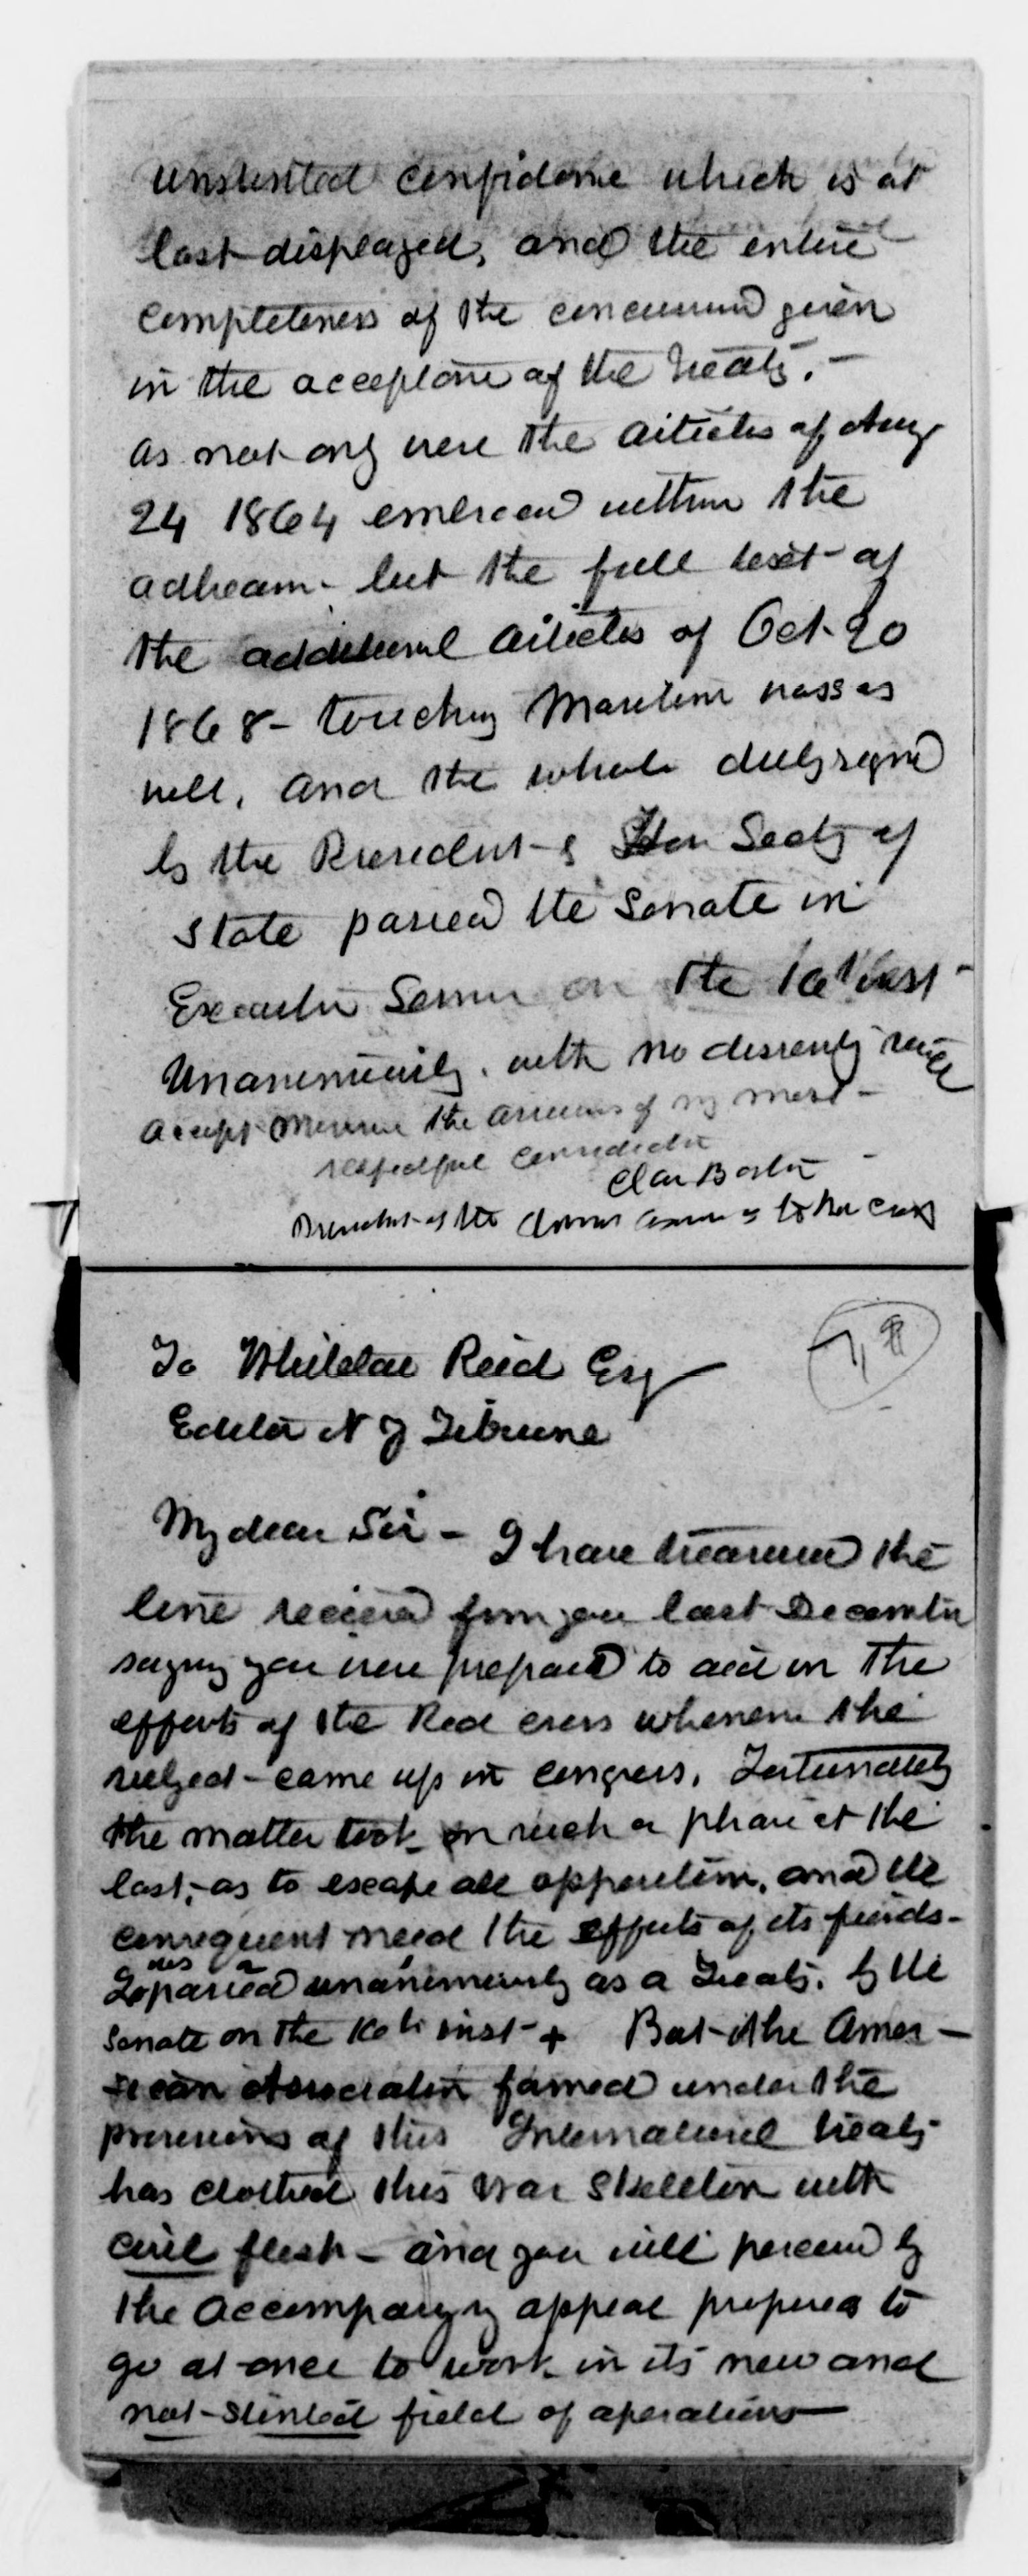 unstinted confidence which is at
last displayed, and the entire
completeness of the concurrence given
in the acceptance of the treaty. -
as not only were the articles of Aug
24 1864 embraced within the
adhesion - but the full text of
the additional articles of Oct. 20
1868 - touching Maritime wars as
well, and the whole duly signed
by the President & Hon Secty of
State passed the Senate in
Executive Session on the 16th inst -
Unanimously, with no dissenting voice
Accept Monsieur the assurances of my most -
respectful consideration
Clara Barton -
President of the American Association of the Red Cross
78
To Whitelaw Reid Esq
Editor N Y Tribune
My dear Sir - I have treasured the
line received from you last December
saying you were prepared to aid in the
efforts of the Red Cross whenever the
subject - came up in congress. Fortunately
the matter took on such a phase at the
last, as to escape all opposition, and the
consequent need the efforts of its friends -
passed unanimously as a Treaty. by the
Senate on the 16th inst - + But the Amer -
ican Association formed under the
provisions of this International treaty
has clothed this war skeleton with
civil flesh - and you will perceive by
the accompanying appeal prepares to
go at once to work in its new and
not - stinted field of operations